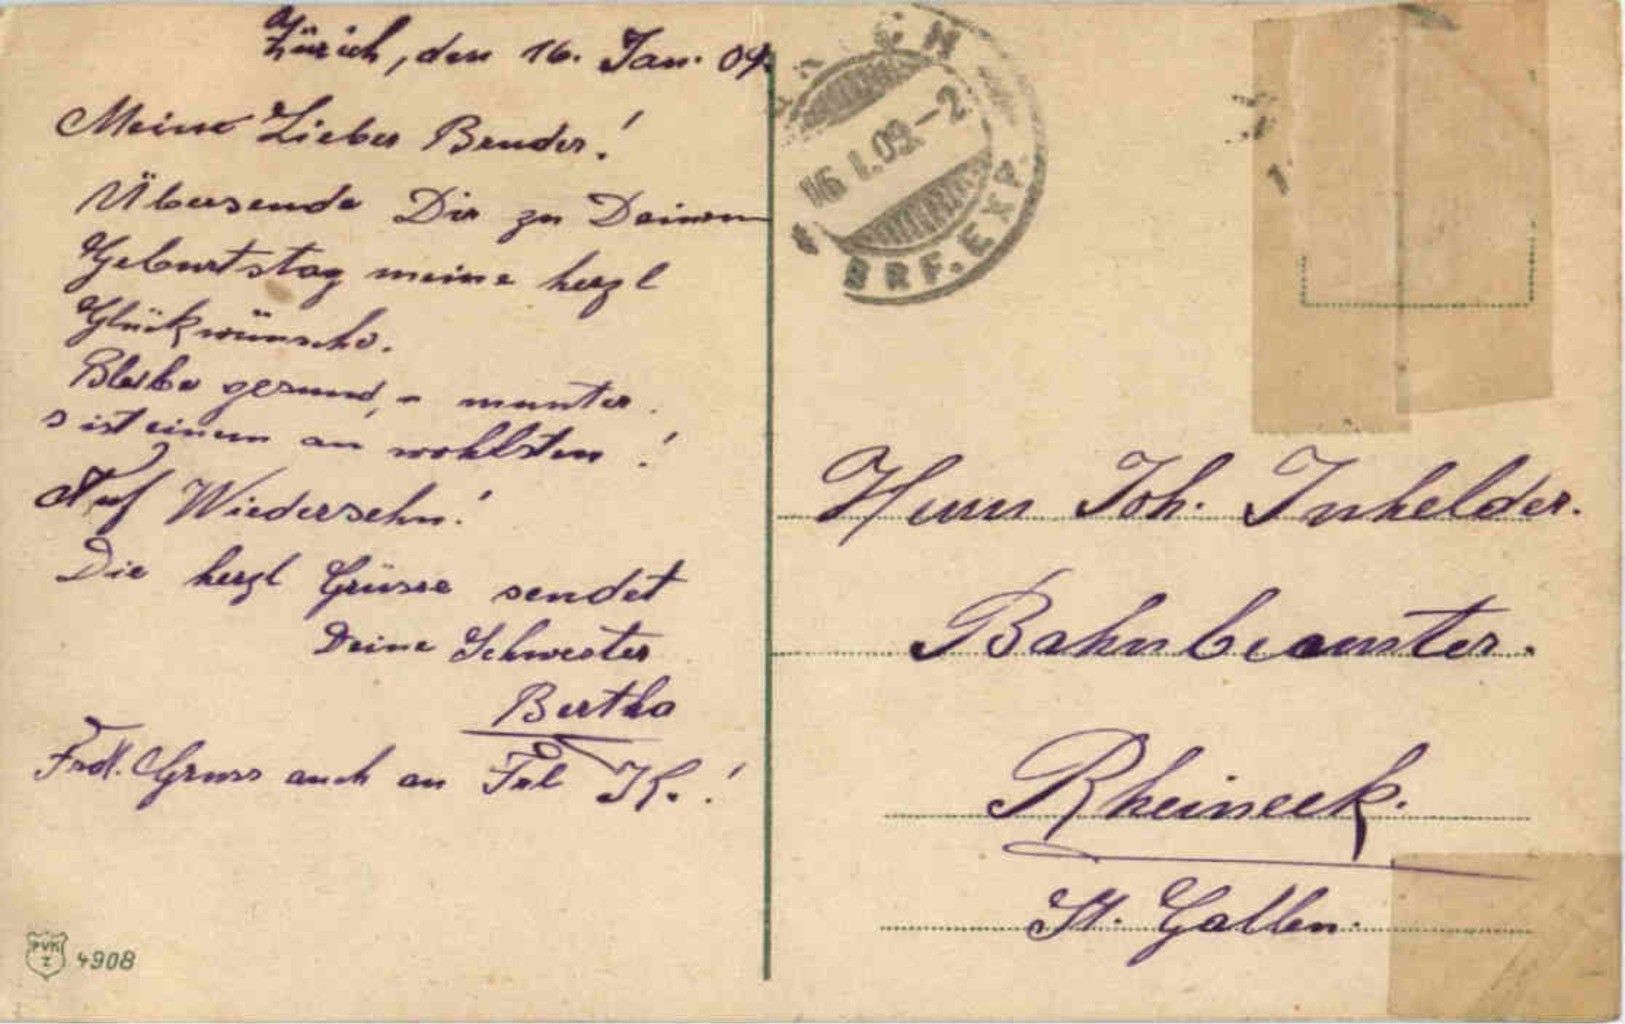 Zürich, den 16. Jan. 09.
Meine Lieber Bruder!
Übersende Dir zu Deinem
Geburtstag meine herzl
Glückwünsche.
Bleibe gesund, u munter.
s ist einem am wohlsten!
Auf Wiedersehn!
Die herzl Grüsse sendet
Deine Schwester
Bertha
Frdl. Gruss auch an Frl K.!
PVK
Z
4908
16 I.09.-2
BRF.EXP.
Herrn Joh. Inhelder.
Bahnbeamter.
Rheineck.
St. Gallen.